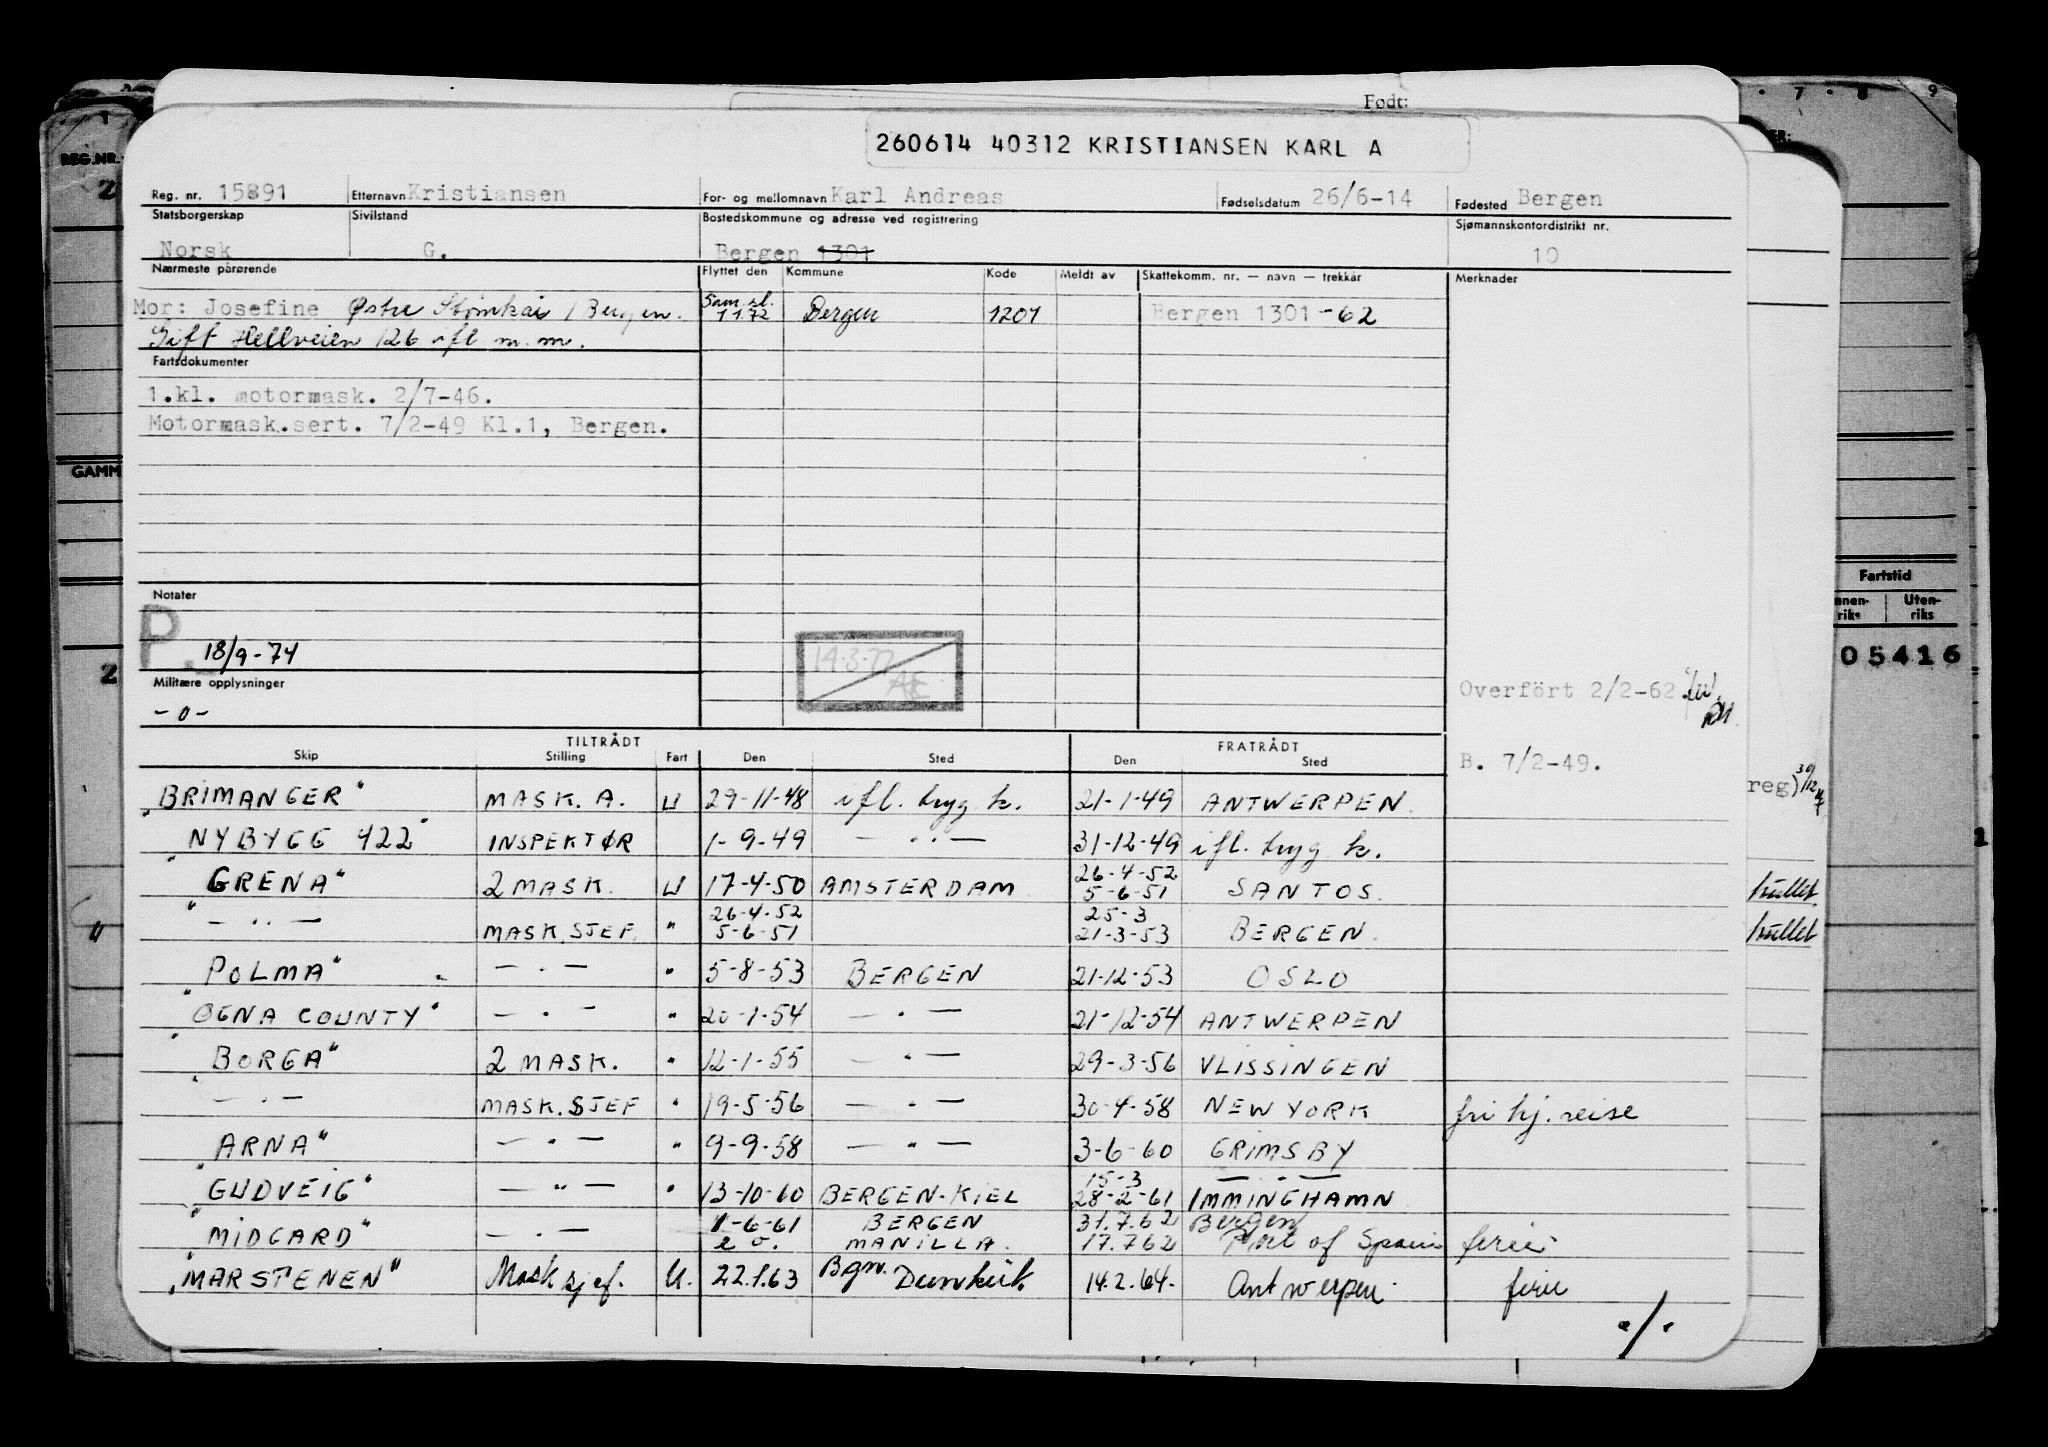 Født:
260614 40312 KRISTIANSEN KARL A
Reg. nr. 15891 Etternavn Kristiansen For- og mellomnavn Karl Andreas Fødselsdatum 26/6-14 Fødested Bergen
Statsborgerskap Sivilstand Bostedskommune og adresse ved registrering Sjømannskontordistrikt nr.
Norsk G. Bergen 1301 10
Nærmeste pårørende Flyttet den Kommune Kode Meldt av Skattekomm. nr. — navn — trekkår Merknader
Mor: Josefine Østre Strømkai / Bergen. Sam.sl. 1 1 72 Bergen 1201 Bergen 1301 -62
Gift Hellveien 126 ifl m.m.
Fartsdokumenter
1.kl. motormask. 2/7-46.
Motormask.sert. 7/2-49 Kl.1, Bergen.
Notater
P. 18/9-74
14-3-77
Militære opplysninger
-0-
Overfört 2/2-62
TILTRÅDT FRATRÅDT
Skip Stilling Fart Den Sted Den Sted
B. 7/2-49.
"BRIMANGER" MASK. A. U 29-11-48 ifl. tryg k. 21-1-49 ANTWERPEN.
"NYBYGG 422" INSPEKTØR 1-9-49 — ·· — 31-12-49 ifl. tryg k.
"GRENA" 2 MASK. U 17-4-50 AMSTERDAM 26-4-52 5-6-51 SANTOS.
— ·· — MASK. SJEF. " 26-4-52 5-6-51 25-3 21-3-53 BERGEN.
"POLMA" — · — " 5-8-53 BERGEN 21-12-53 OSLO
"OGNA COUNTY" — · — " 20-1-54 — · — 21-12-54 ANTWERPEN
"BORGA" 2 MASK. " 12-1-55 — · — 29-3-56 VLISSINGEN
— · — MASK. SJEF " 19-5-56 — · — 30-4-58 NEW YORK fri hj. reise
"ARNA" — · — " 9-9-58 — " — 3-6-60 GRIMSBY
"GUDVEIG" — " — " 13-10-60 BERGEN-KIEL 15-3 28-2-61 — · — IMMINGHAMN
"MIDGARD" — · — 1-6-61 BERGEN MANILLA. 31.7.62 Bergen 17.7 62 Port of Spain ferie
"MARSTENEN" Mask sjef. U. 22.1.63 Bgn. Dunkirk 14.2.64. Antwerpen. ferie
·/·
REG.NR.
2
GAMM
2
7 · 8 9
Fartstid
Uten-
riks
05416
reg)
hullet
hullet
1